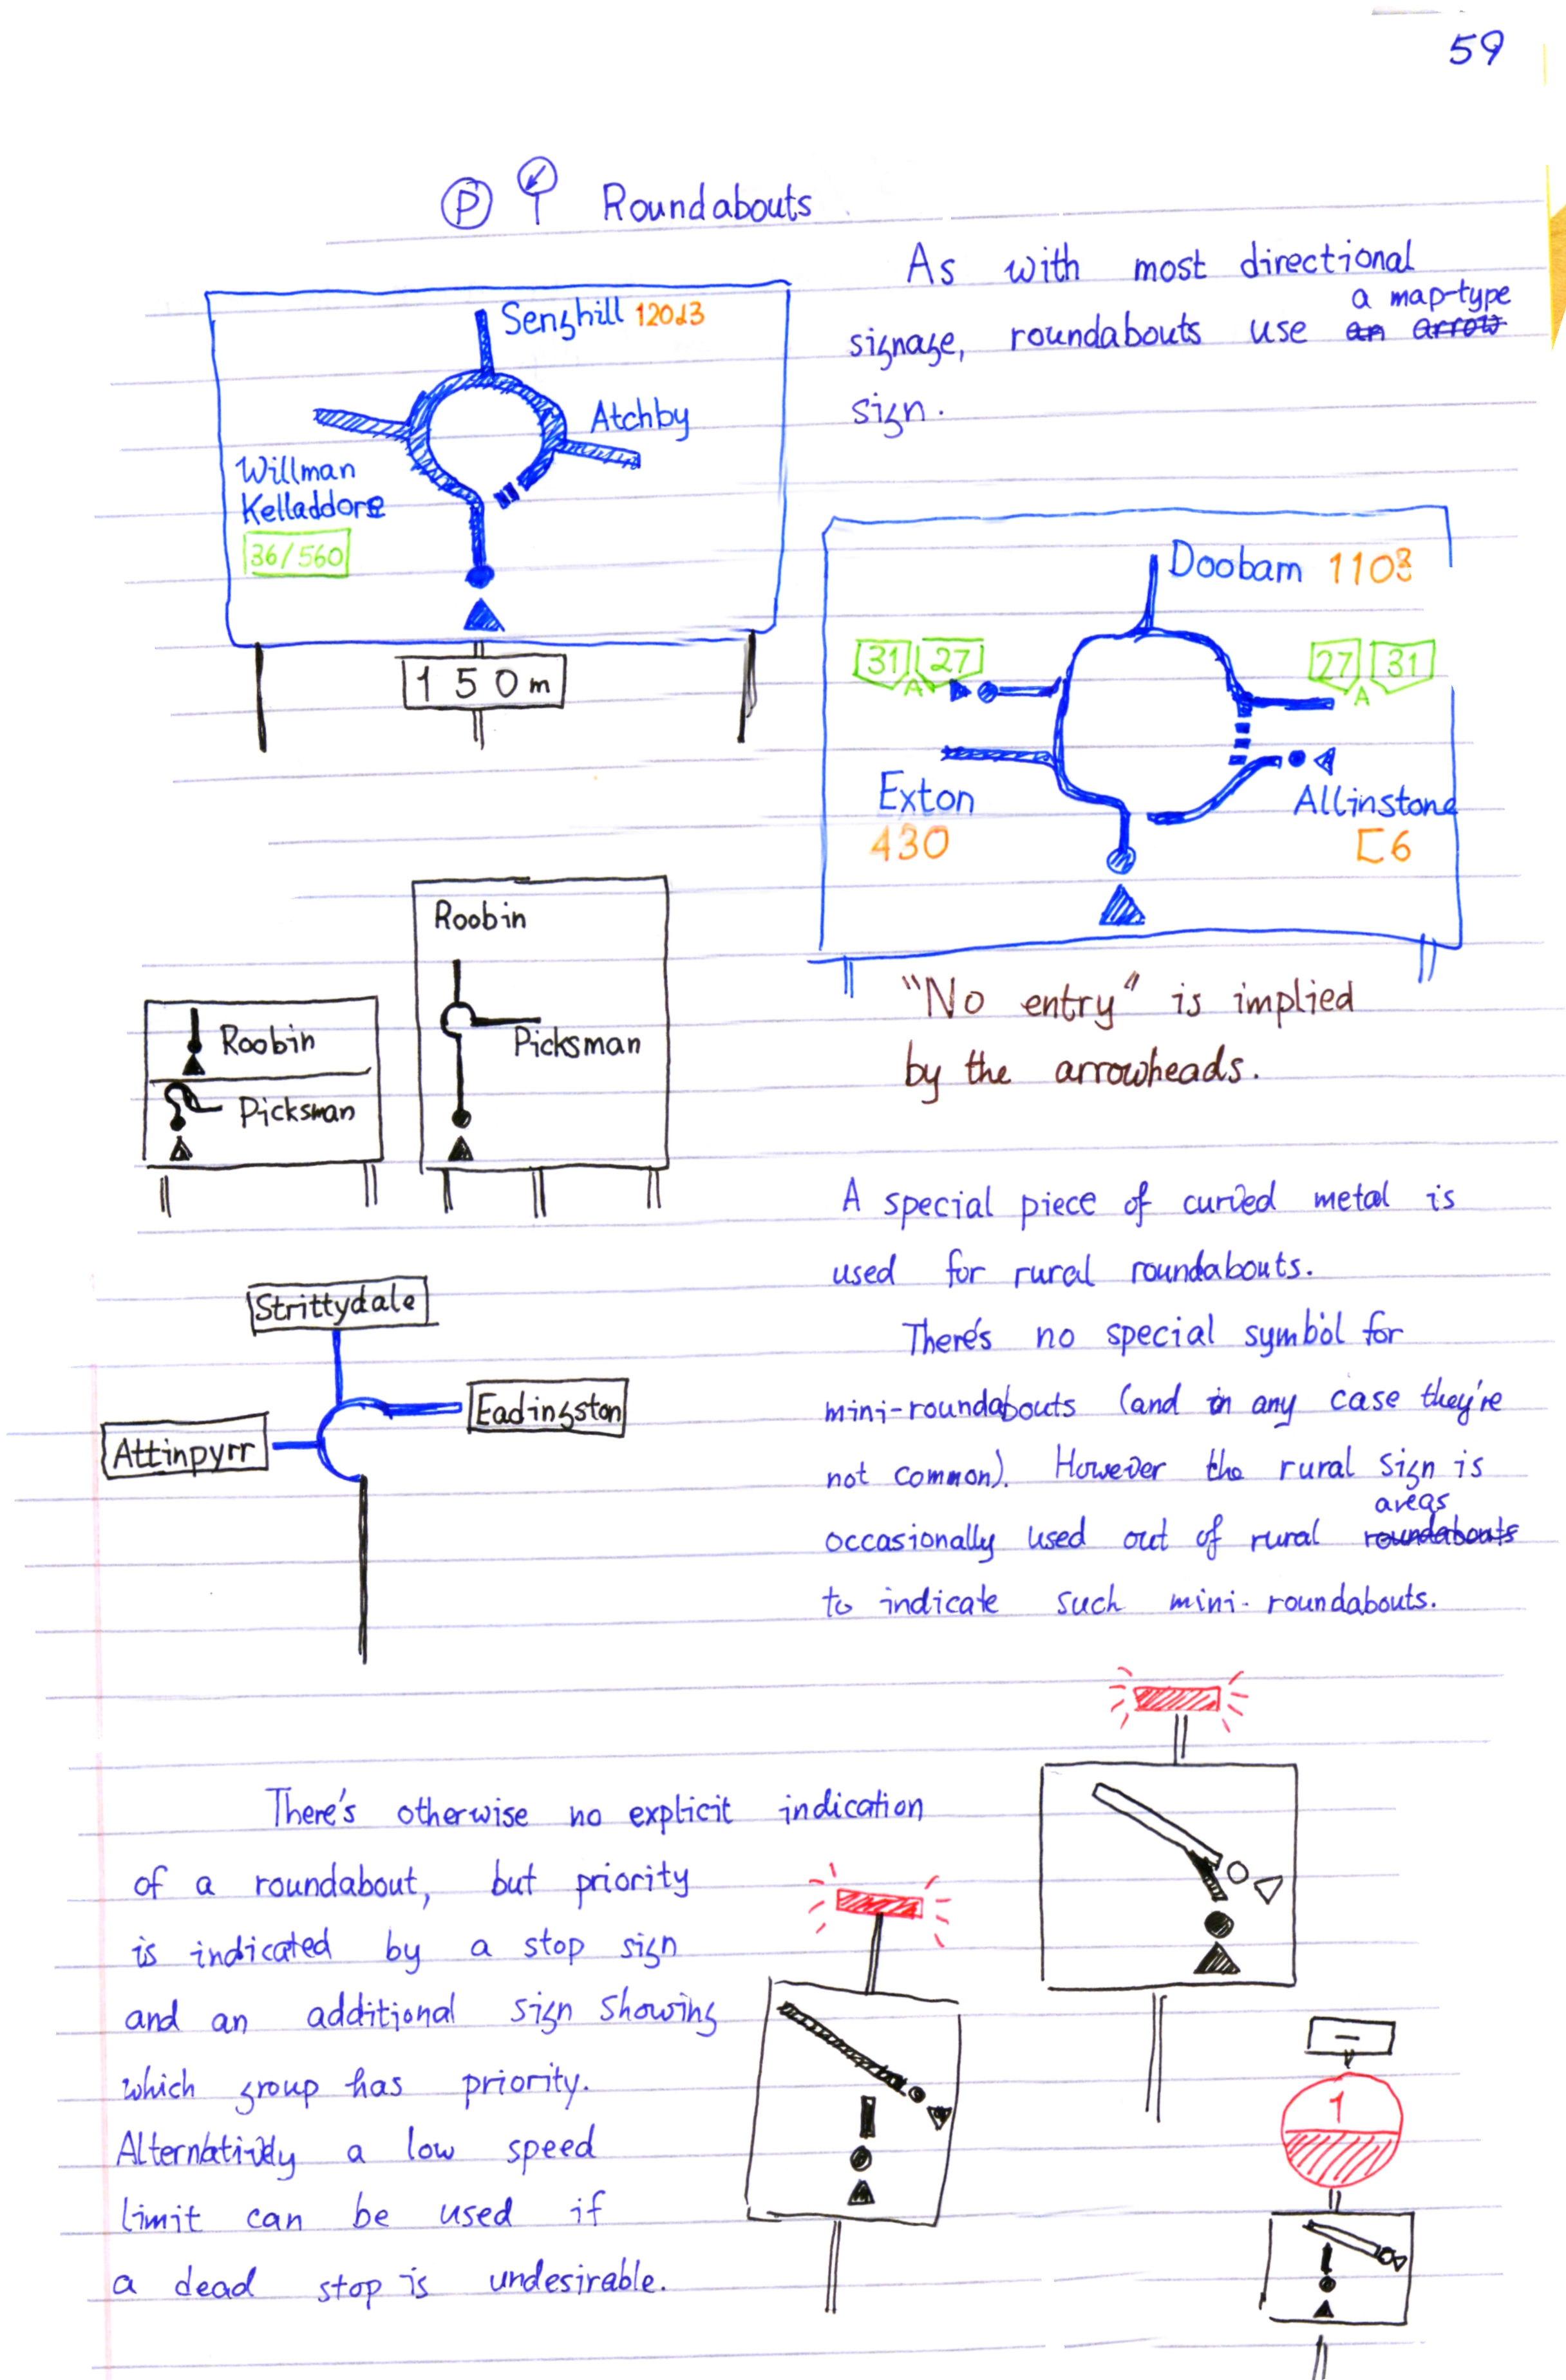 59
P Roundabouts
Senghill 120d3
Atchby
Willman
Kelladdore
36/560
150m
As with most directional
a map-type
signage, roundabouts use an arrow
sign.
Doobam 110
31 27
A
27 31
A
Exton
430
Allinstone
C6
"No entry" is implied
by the arrowheads.
Roobin
Picksman
Roobin
Picksman
A special piece of curved metal is
used for rural roundabouts.
There's no special symbol for
mini-roundabouts (and in any case they're
not common). However the rural sign is
areas
occasionally used out of rural roundabouts
to indicate such mini-roundabouts.
Strittydale
Eadingston
Attinpyrr
There's otherwise no explicit indication
of a roundabout, but priority
is indicated by a stop sign
and an additional sign showing
which group has priority.
Alternatively a low speed
limit can be used if
a dead stop is undesirable.
1